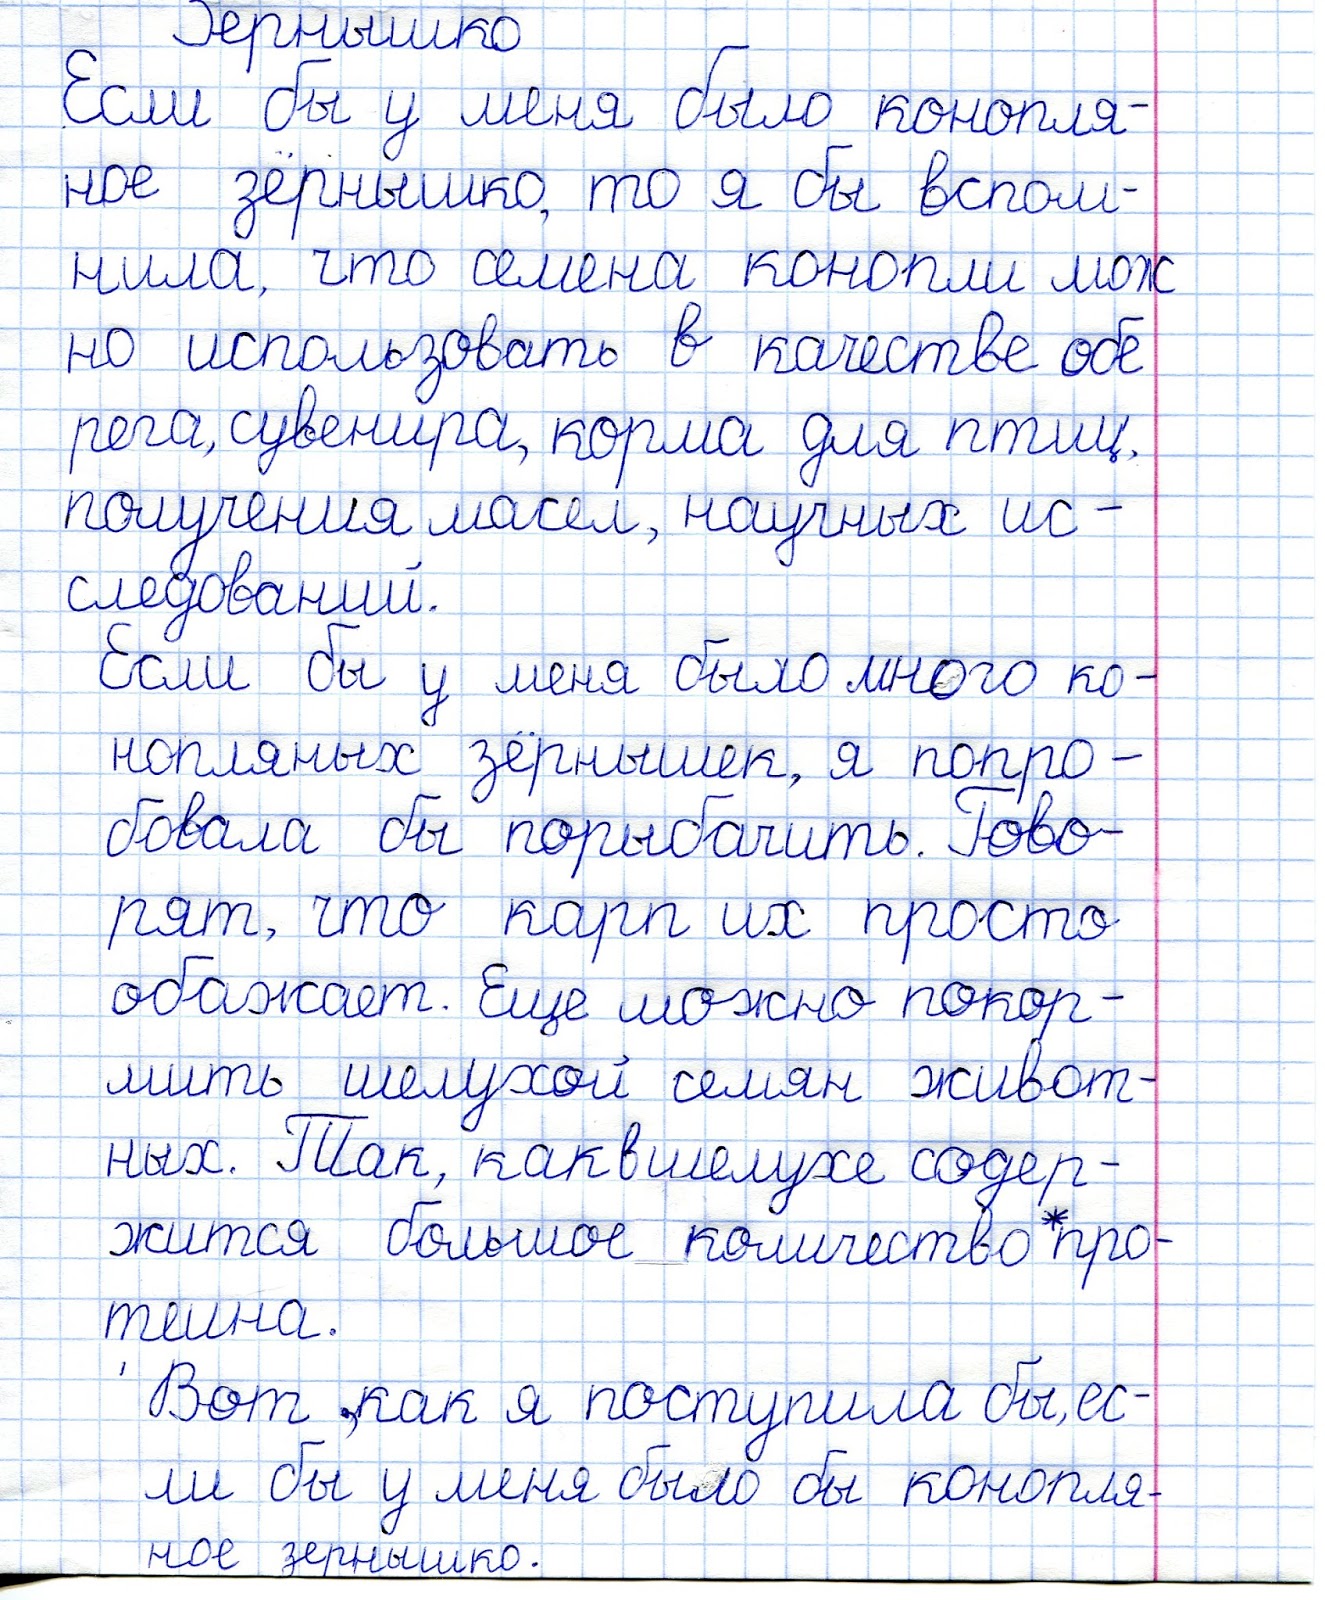 Зернышко
Если бы у меня было конопля-
ное зёрнышко, то я бы вспом-
нила, что семена конопли мож
но использовать в качестве обе
рега, сувенира, корма для птиц,
получения масел, научных ис-
следований.
Если бы у меня было много ко-
нопляных зёрнышек, я попро-
бовала бы порыбачить. Гово-
рят, что карп их просто
обажает. Еще можно покор-
мить шелухой семян живот-
ных. Так, как в шелухе содер-
жится большое количество *про-
теина.
Вот, как я поступила бы, ес-
ли бы у меня было бы конопля-
ное зернышко.